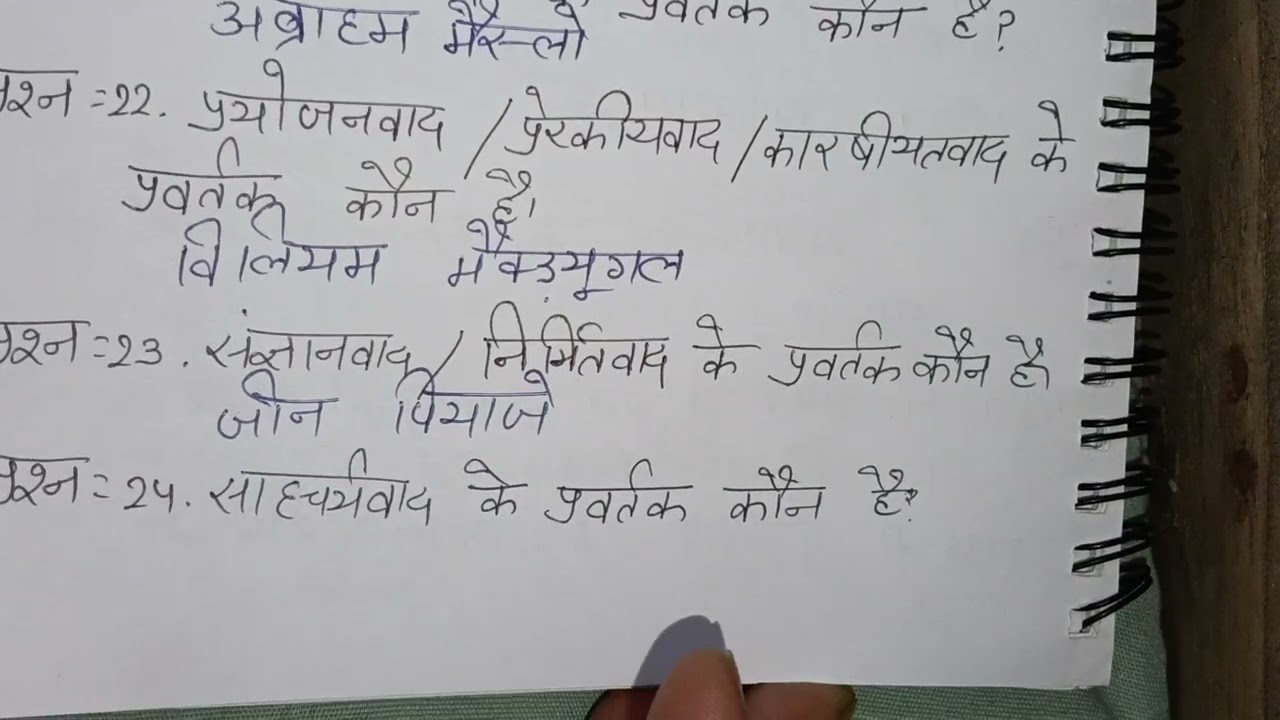 प्रवर्तक कौन है?
अब्राहम मैस्लो
प्रश्न =22. प्रयोजनवाद / प्रेरकीयवाद / कारषीयतवाद के
प्रवर्तक कौन है।
विलियम मैक्ड्यूगल
प्रश्न =23. संज्ञानवाद / निर्मितवाद के प्रवर्तक कौन है।
जीन पियाजे
प्रश्न = 24. साहचर्यवाद के प्रवर्तक कौन है?